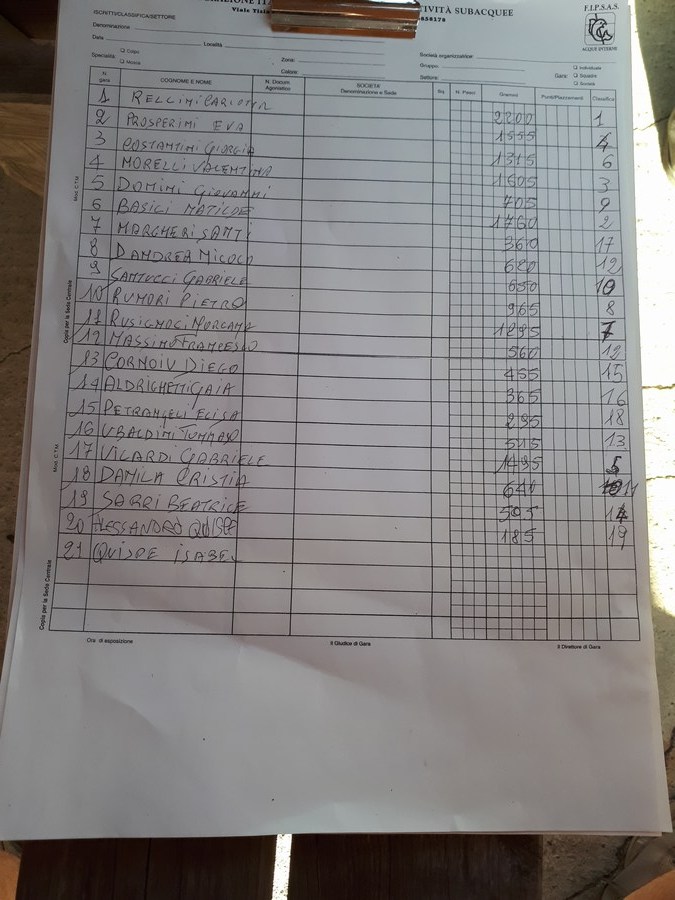 TIVITÀ SUBACQUEE F.I.P.S.A.S.
ISCRITTI/CLASSIFICA/SETTORE
ACQUE INTERNE
Denominazione
Data Località Società organizzatrice:
Specialità: Colpo Zona: Gruppo: Individuale
Mosca Calcio: Settore: Gara: Squadre
Società
N. gara COGNOME E NOME N. Docum Agonistico SOCIETÀ Denominazione e Sede Sq. N. Pesci Grammi Punti/Piazzamenti Classifica
1 RELLINI CARLOTTA 2200 1
2 PROSPERINI EVA 1555 4
3 COSTANTINI GIORGIA 1315 6
4 MORELLI VALENTINA 1605 3
5 DOMINI GIOVANNI 705 9
6 BASILI MATILDE 1760 2
7 MARGHERI SANTI 360 17
8 DANDREA NICOLO 620 12
9 SANTUCCI GABRIELE 650 10
10 RUMORI PIETRO 965 8
11 RUSIGNOLI MORGANA 7
12 MASSIMO FRANCESCO 560 12
13 CORNOIU DIEGO 455 15
14 ALDRIGHETTI GAIA 365 16
15 PETRANGELI ELISA 295 18
16 UBALDINI TOMMASO 515 13
17 VILARDI GABRIELE 1495 5
18 DAMILA CRISTIA 640 11
19 SARRI BEATRICE 505 14
20 ALESSANDRO QUISPE 185 19
21 QUISPE ISABEL
Mod. C.T.M.
Copia per la Sede Centrale
Mod. C.T.M.
Copia per la Sede Centrale
Ora di esposizione Il Giudice di Gara Il Direttore di Gara